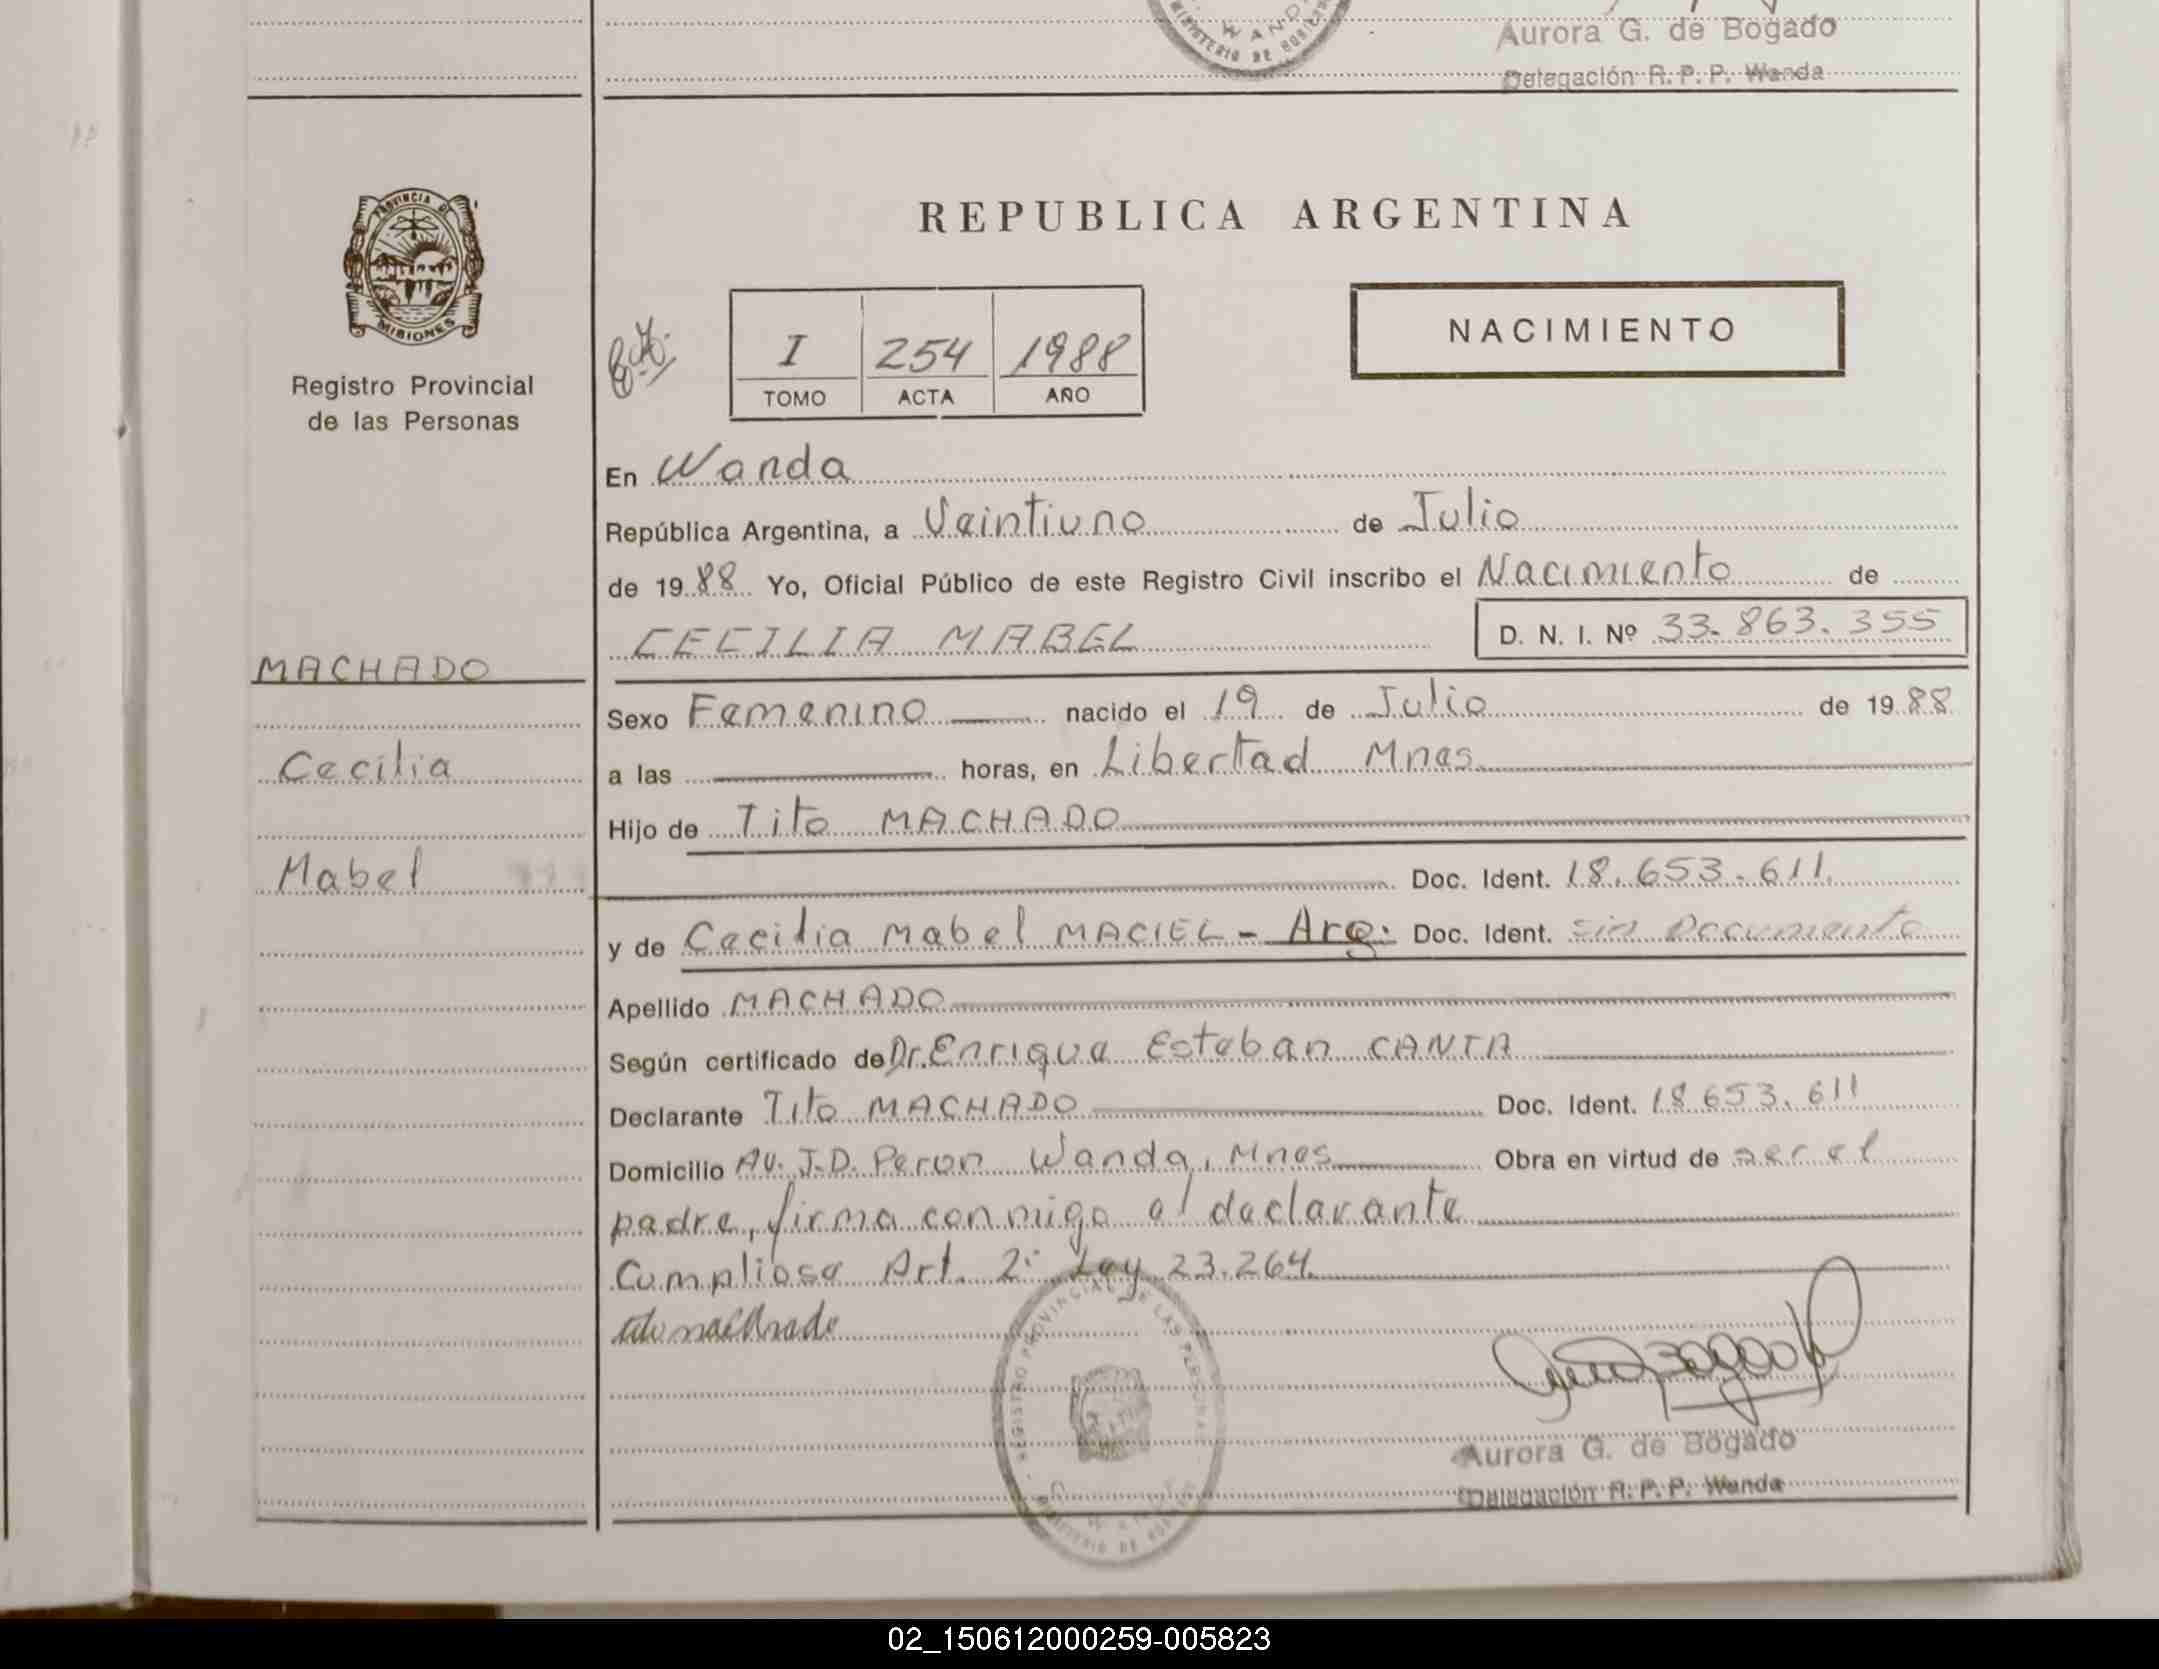 MINISTERIO DE
WANDA
Aurora G. de Bogado
Delegación R. P. P. Wanda
PROVINCIA DE
MISIONES
Registro Provincial
de las Personas
REPUBLICA ARGENTINA
I 254 1988
TOMO ACTA AÑO
NACIMIENTO
En Wanda
República Argentina, a Veintiuno de Julio
de 1988 Yo, Oficial Público de este Registro Civil inscribo el Nacimiento de
CECILIA MABEL D. N. I. Nº 33.863.355
MACHADO
Cecilia
Mabel
Sexo Femenino nacido el 19 de Julio de 1988
a las horas, en Libertad Mnes
Hijo de Tito MACHADO
Doc. Ident. 18.653.611
y de Cecilia Mabel MACIEL - Arg. Doc. Ident. Sin Documento
Apellido MACHADO
Según certificado de Dr. Enrique Esteban CANTA
Declarante Tito MACHADO Doc. Ident. 18 653.611
Domicilio AV. J.D. Peron Wanda, Mnes Obra en virtud de ser el
padre, firma conmigo el declarante
Cumpliose Art. 2º Ley 23.264
tito machado
REGISTRO PROVINCIAL DE LAS PERSONAS
MINISTERIO DE
Aurora G. de Bogado
Delegación R. P. P. Wanda
02_150612000259-005823